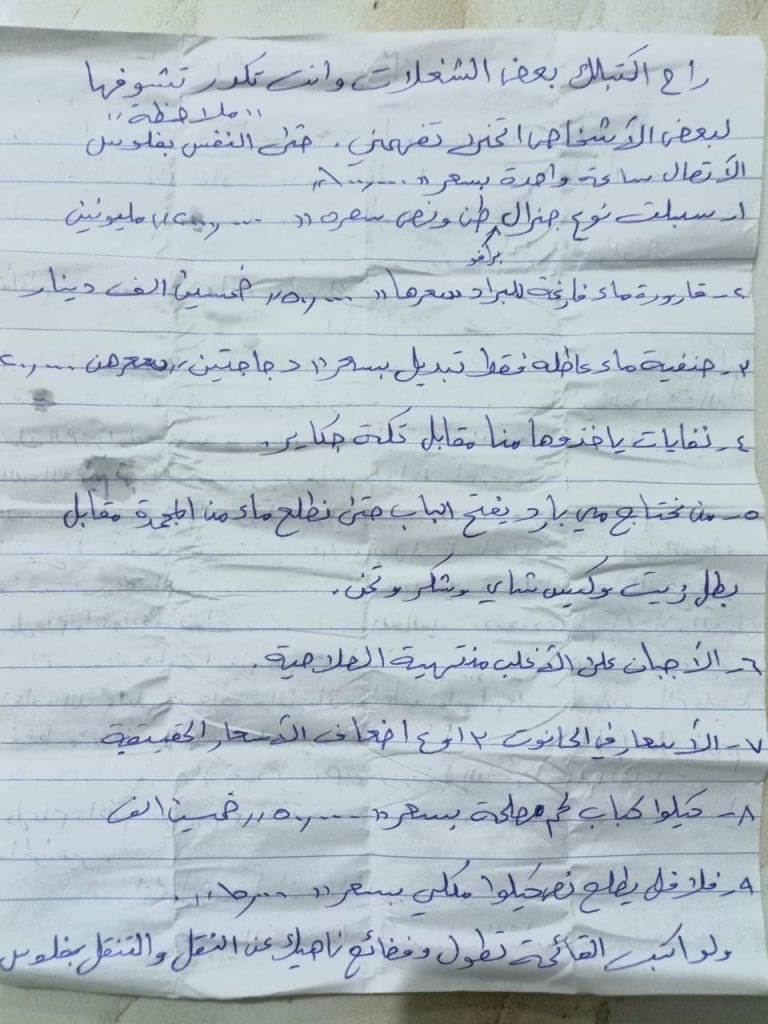 راح اكتبلك بعض الشغلات وانت تكدر تشوفها
"ملاحظة"
لبعض الأشخاص اتمنى تفهمني. حتى النفس بفلوس
الأتصال ساعة واحدة بسعر
١- سبلت نوع جنرال طن ونص سعره ,, ٢٠٠٠٠٠٠ ,, مليونين
براكفو
٢- قارورة ماء فارغة للبراد سعرها ,, ٥٠,٠٠٠ ,, خمسين الف دينار
٣- حنفية ماء عاطله فقط تبديل بسعر ,, دجاجتين ,, سعرهن ٢٠,٠٠٠
٤- نفايات ياخذوها منا مقابل تكة جكاير.
٥- من نحتاج مي بارد يفتح الباب حتى نطلع ماء من المجمدة مقابل
بطل زيت وكيس شاي وشكر وتمن.
٦- الأجبان على الأغلب منتهية الصلاحية.
٧- الأسعار في الحانوت ٣ او ٤ اضعاف الأسعار الحقيقية
٨- كيلوا كباب لحم مصلحة بسعر ,, ٥٠,٠٠٠ ,, خمسين الف
٩- فلافل يطلع نص كيلوا مكلي بسعر
ولو اكتب القائمة تطول وفضائع ناهيك عن النقل والتنقل بفلوس